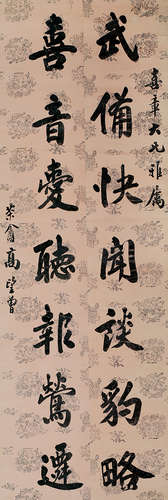 大兄雅屬
武備快聞談豹略
喜音愛聽報鶯遷
茶盦高望曾